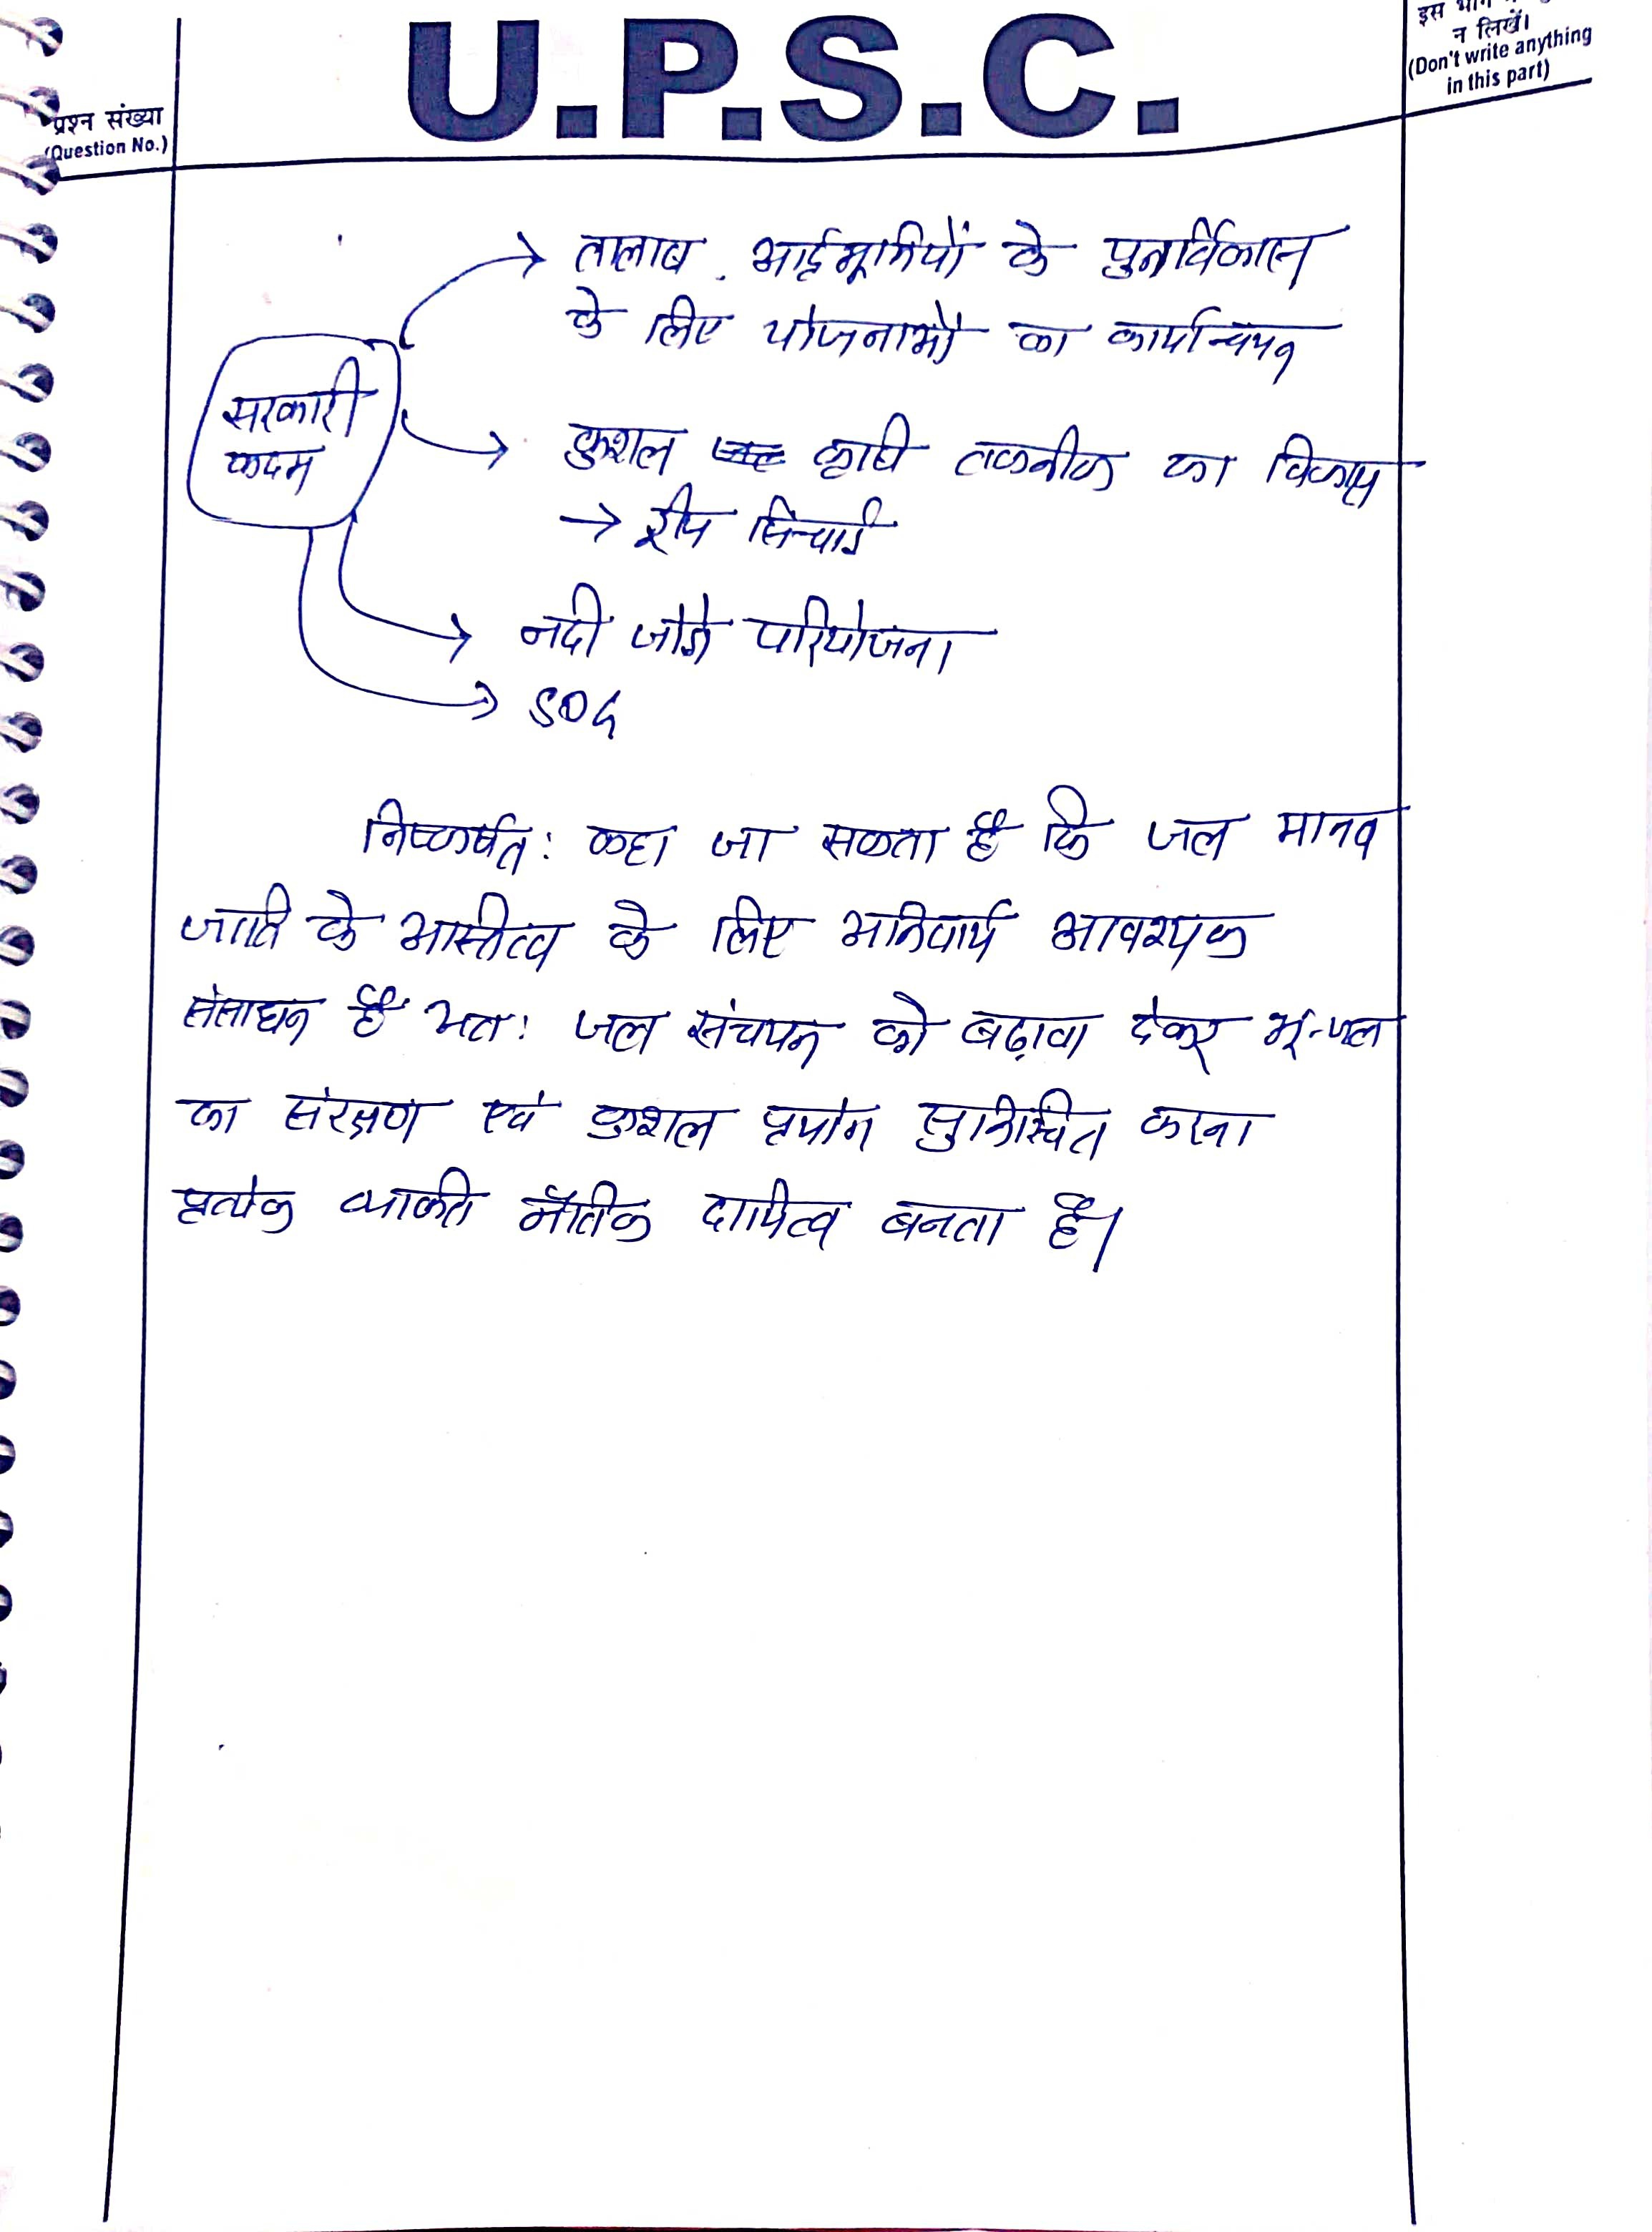 U.P.S.C.
इस भाग में कुछ
न लिखें।
(Don't write anything
in this part)
प्रश्न संख्या
(Question No.)
तालाब, आर्द्रभूमियों के पुनर्विकास
के लिए योजनाओं का कार्यान्वयन
सरकारी
कदम
कुशल कृषि तकनीक का विकास
→ ड्रीप सिंचाई
नदी जोड़ो परियोजना
निष्कर्षत: कहा जा सकता है कि जल मानव
जाति के अस्तित्व के लिए अनिवार्य आवश्यक
संसाधन है अत: जल संचयन को बढ़ावा देकर भू-जल
का संरक्षण एवं कुशल प्रयोग सुनिश्चित करना
प्रत्येक व्यक्ति नैतिक दायित्व बनता है।